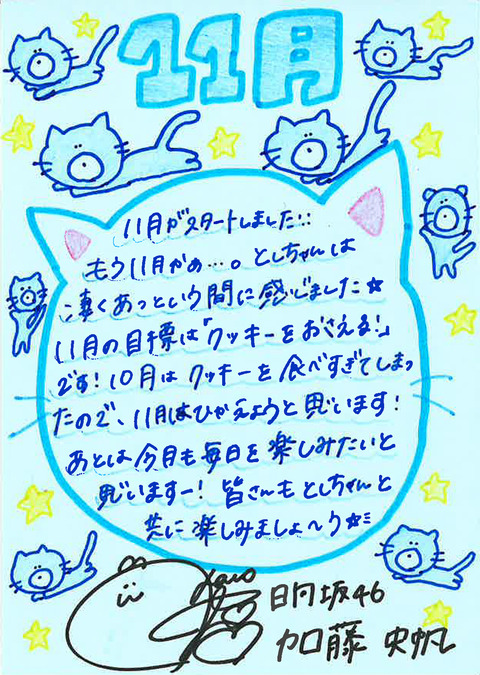 11月
11月がスタートしました!!
もう11月かぁ…。としちゃんは
凄くあっという間に感じました☆
11月の目標は「クッキーをおさえる!」
です! 10月はクッキーを食べすぎてしまっ
たので、11月はひかえようと思います!
あとは今月も毎日を楽しみたいと
思いますー! 皆さんもとしちゃんと
共に楽しみましょ〜う☆ミ
日向坂46
加藤 史帆